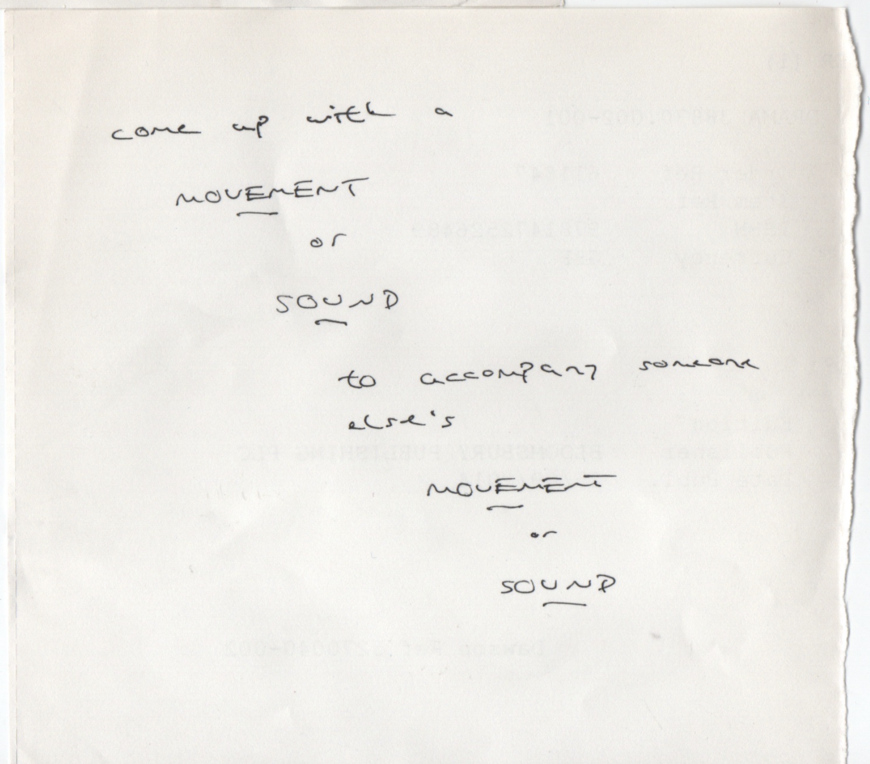 come up with a
MOVEMENT
or
SOUND
to accompany someone
else's
MOVEMENT
or
SOUND